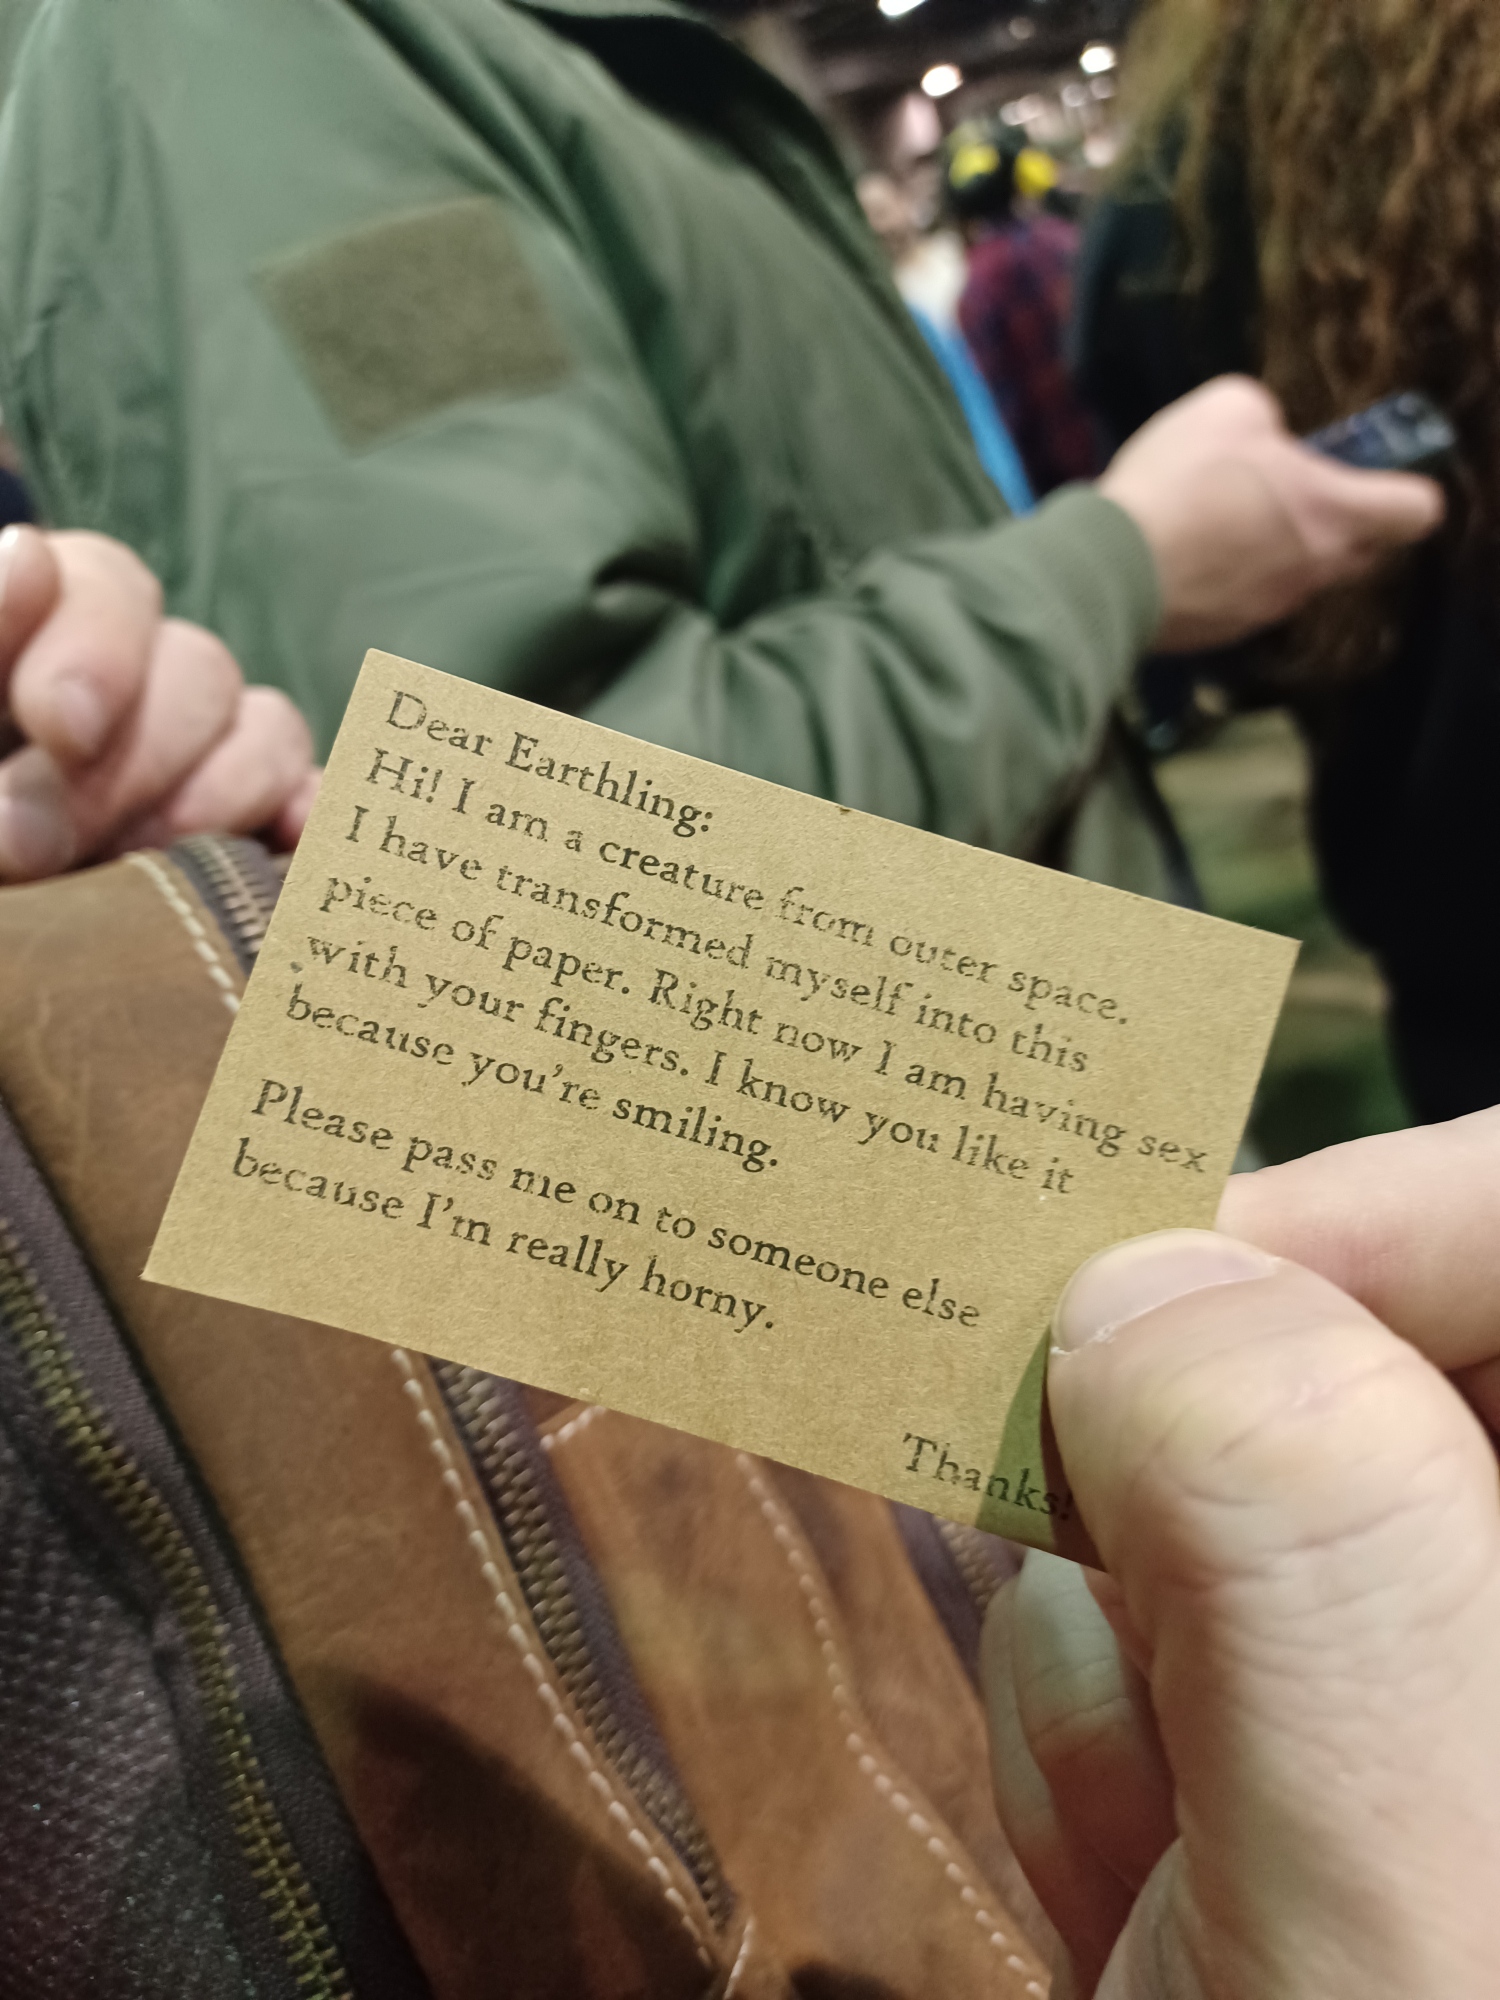 Dear Earthling:
Hi! I am a creature from outer space.
I have transformed myself into this
piece of paper. Right now I am having sex
with your fingers. I know you like it
because you're smiling.
Please pass me on to someone else
because I'm really horny.
Thanks!